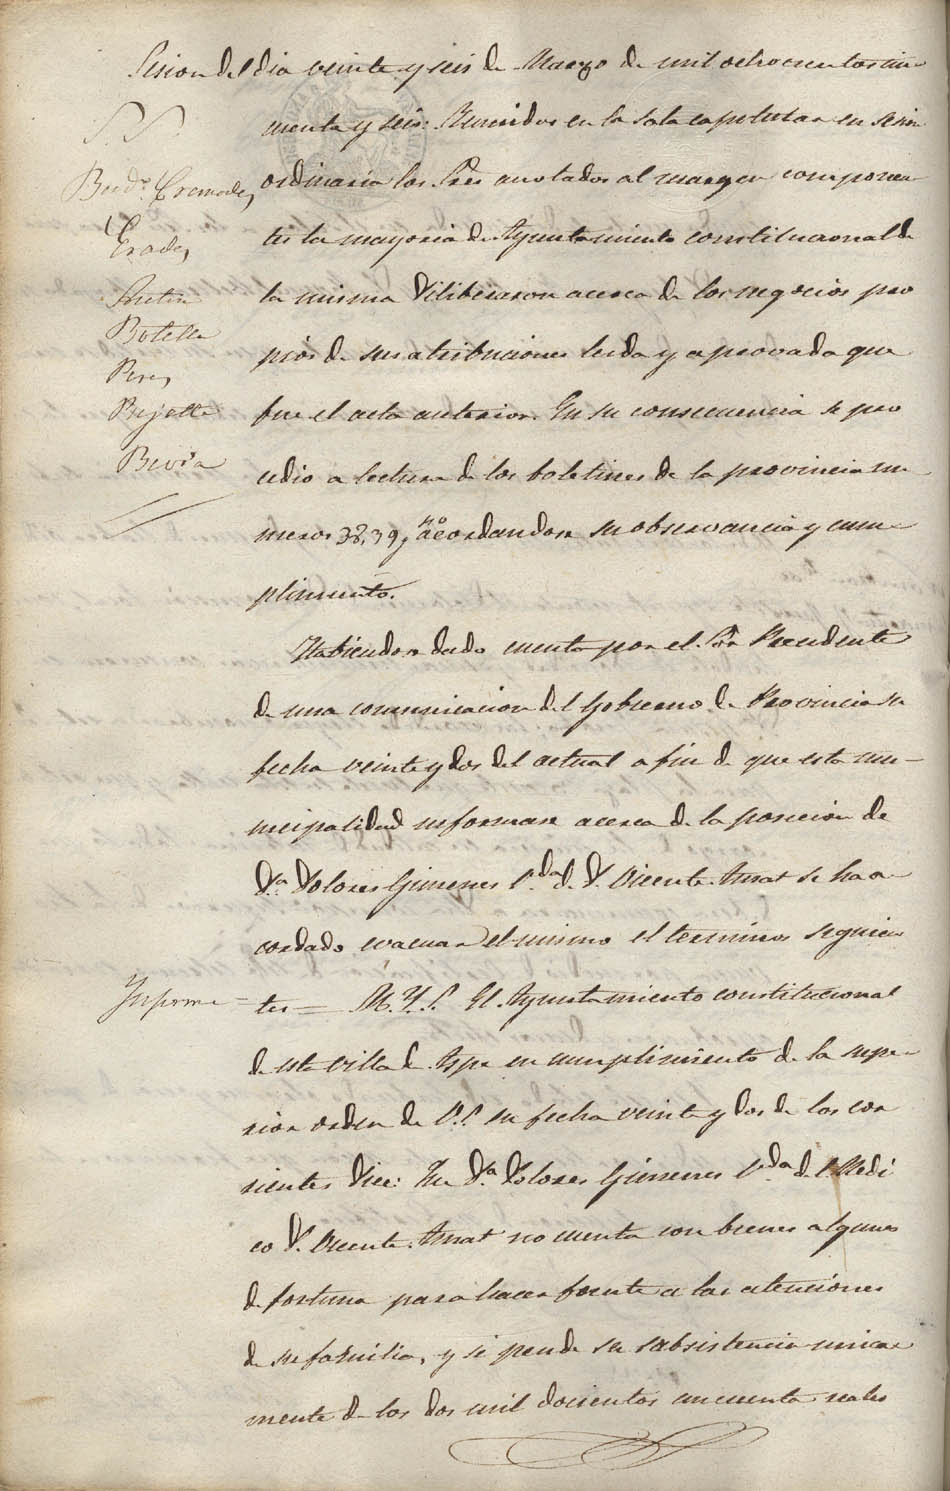 Sesion del dia veinte y seis de Marzo de mil ochocientos cin
cuenta y seis: Reunidos en la sala capitular en sesion
ordinaria los Sres anotados al margen componen
tes la mayoria de Ayuntamiento constitucional de
la misma deliberaron acerca de los negocios pro
pios de sus atribuciones leida y aprovada que
fue el acta anterior. En su consecuencia se pro
cedio a lectura de los boletines de la provincia nu
meros 38, 39, acordandose su observancia y cum
plimiento.
S. S.
Cremades
Prades
Botella
Peres
Bejolla
Bevia
Habiendose dado cuenta por el Sor Presidente
de una comunicacion del Gobierno de Provincia su
fecha veinte y dos del actual a fin de que esta mu-
nicipalidad informase acerca de la posicion de
Da. Dolores Gimenes Vda. de D. Vicente Amat se ha a
cordado evacuar el mismo el terminos siguien
Informe - tes = M. Y. S. El Ayuntamiento constitucional
de esta villa de Aspe en cumplimiento de la supe
rior orden de V.S. su fecha veinte y dos de los cor
rientes dice: Que Da. Dolores Gimenes Vda. del Medi
co D. Vicente Amat no cuenta con bienes algunos
de fortuna para hacer frente a las atenciones
de su familia, y si pende su subsistencia unica
mente de los dos mil docientos cincuenta reales